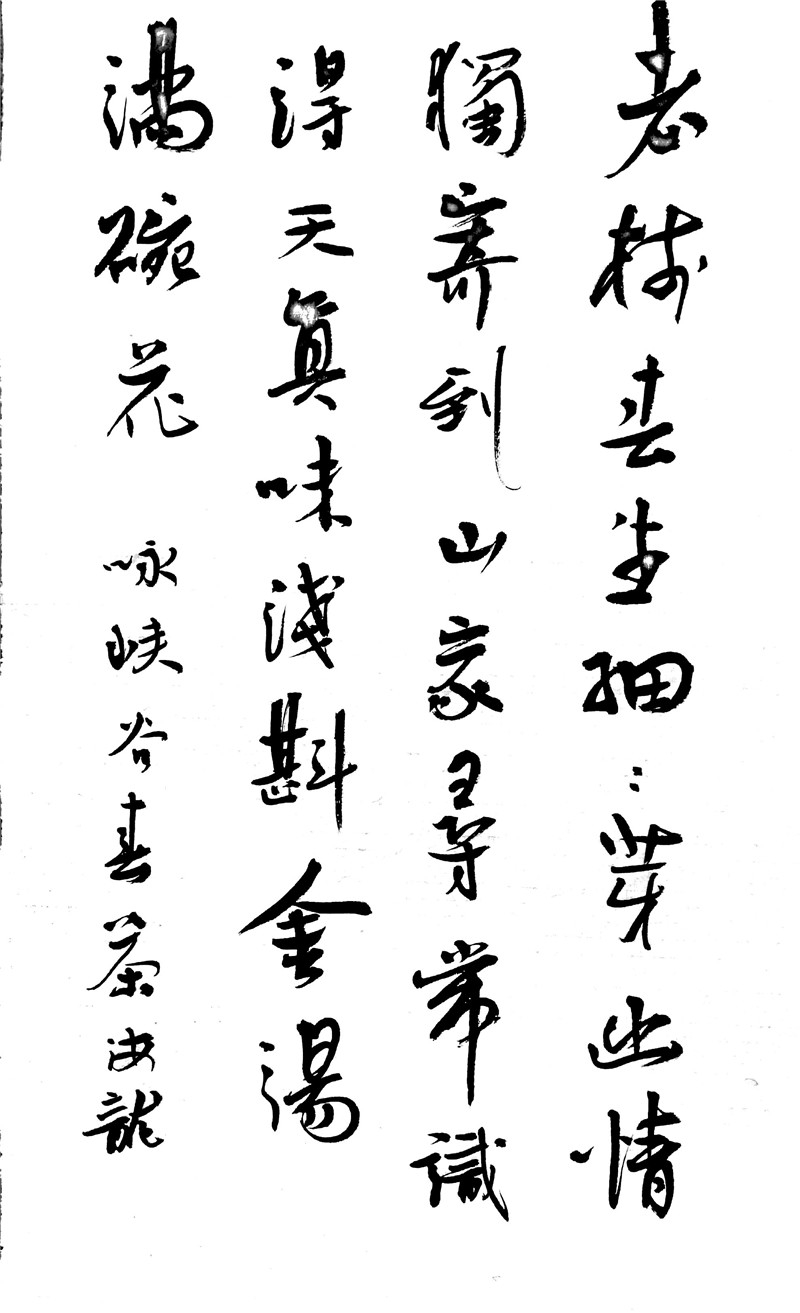 老樹春生細々芽幽情
獨寄到山家尋常識
得天真味淺斟金湯
滿碗花 咏峡谷春茶 汝龍